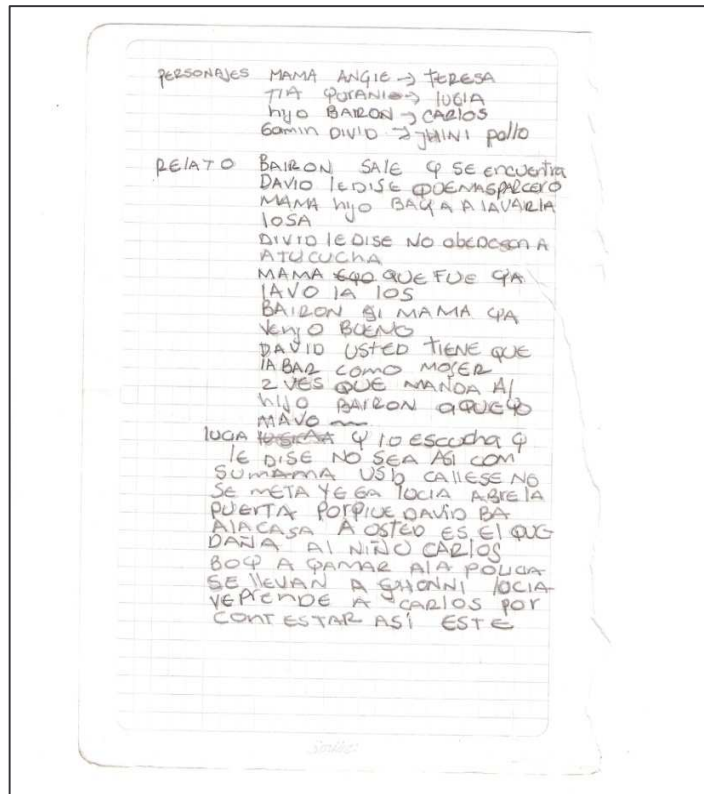 PERSONAJES MAMA ANGIE → TERESA
TIA YURANI → LUCIA
hijo BAIRON → CARLOS
Gamin DIVID → JHINI pollo
RELATO BAIRON SALE Y SE encuentra
DAVID LE DISE QUENASPARCERO
MAMA hijo BAYA A LAVAR LA
LOSA
DIVID LE DISE NO obedescA A
A TU CUCHA
MAMA QUE FUE YA
LAVO LA LOS
BAIRON SI MAMA YA
VENJO BUENO
DAVID USTED TIENE QUE
LABAR COMO MOJER
2 VES QUE MANDA AL
hijo BAIRON
LUCIA Y LO ESCUCHA Y
LE DISE NO SEA ASI COM
SU MAMA CALLESE NO
SE META LUCIA ABRE LA
PUERTA PORQUE DAVID BA
A LA CASA A OSTED ES EL QUE
DAÑA AL NIÑO CARLOS
BOY A YAMAR A LA POLICIA
SE LLEVAN A LOCIA
REPRENDE A CARLOS POR
CONTESTAR ASÍ ESTE